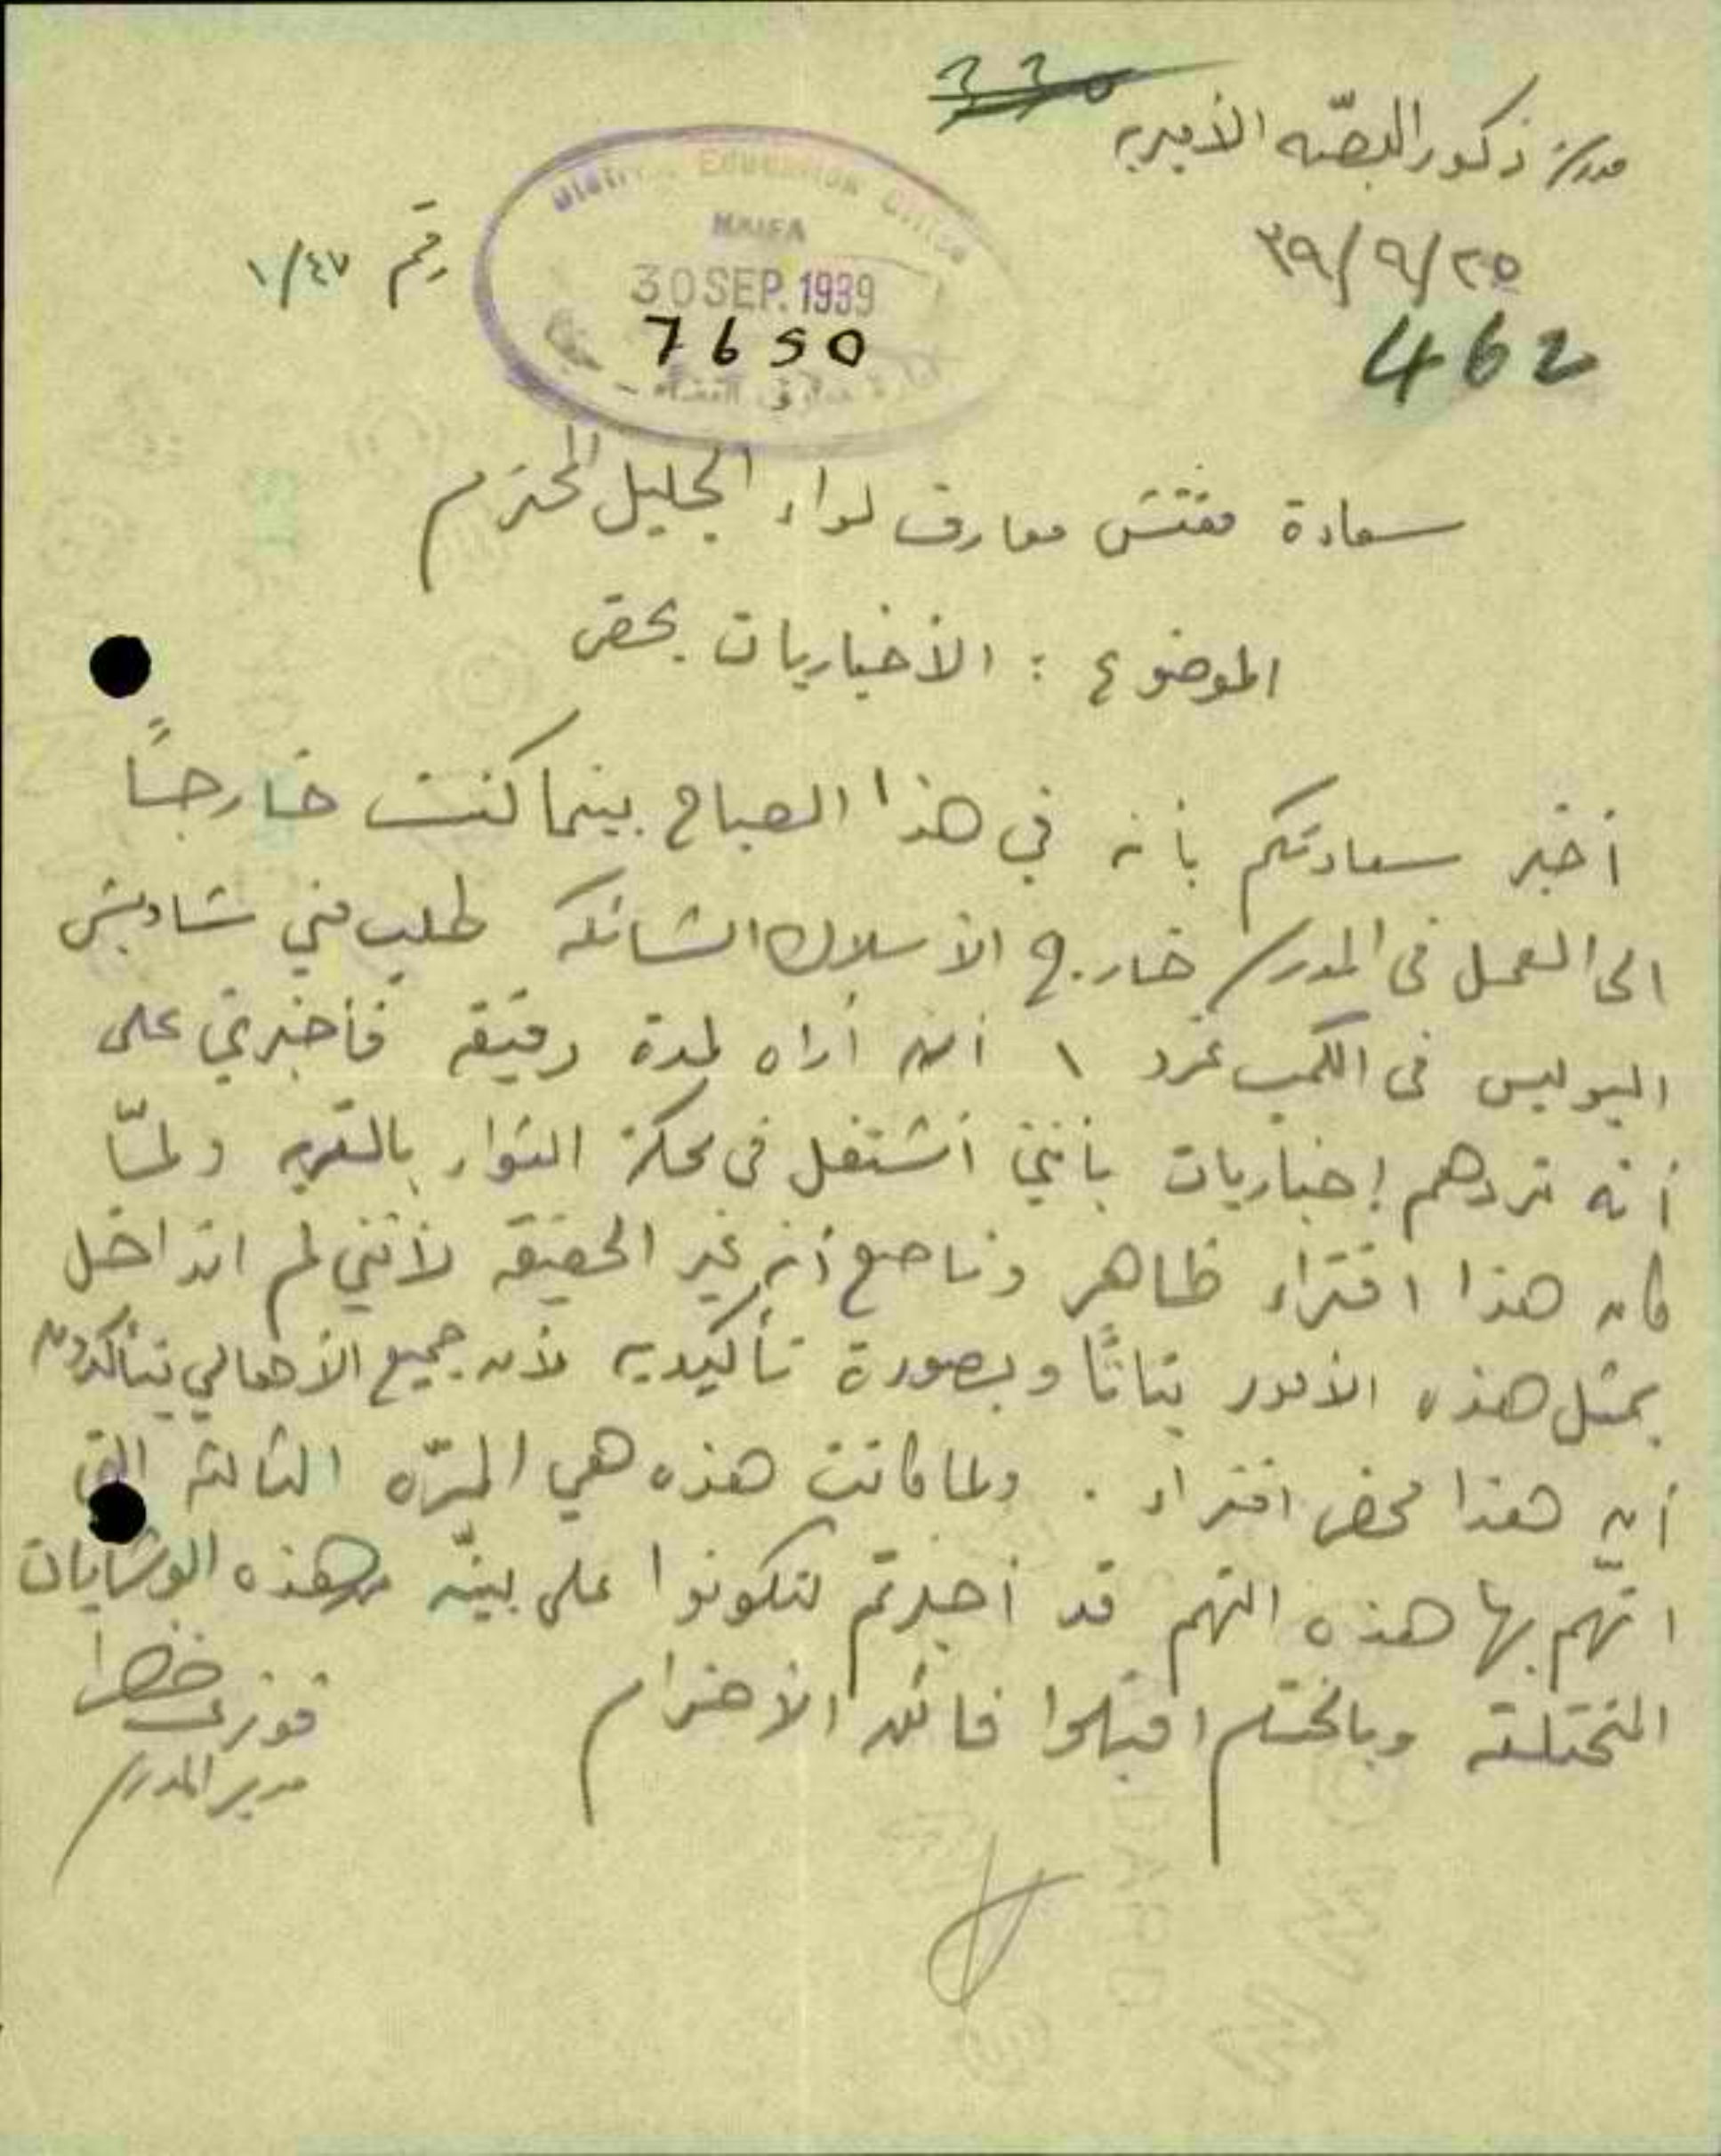 330
مدرسة ذكور البصّه الأميريه
District Education Office
HAIFA
30 SEP. 1939
7650
رقم ١/٤٧
٣٩/٩/٢٥
462
سعادة مفتش معارف لواء الجليل المحترم
الموضوع : الأخباريات بحقي
أخبر سعادتكم بأنه في هذا الصباح بينما كنت خارجاً
الى العمل في المدرسة خارج الأسلاك الشائكه طلب مني شاويش
البوليس في الكمب نمرد ١ أن أراه لمدة دقيقه فأخبرني على
أنه تردهم إخباريات بأنني أشتغل في محكمة الثوار بالقريه ولمّا
كان هذا افتراء ظاهر وناصع أنه غير الحقيقه لأنني لم اتداخل
بمثل هذه الأمور بتاتاً وبصورة تأكيديه لأن جميع الأهالي يتأكدون
أن هذا محض افتراء . ولما كانت هذه هي المرّه الثالثه التي
اتّهم بها هذه التهم قد أخبرتم لتكونوا على بيّنه هذه الوشايات
المختلقه وبالختام اقبلوا فائق الأحترام
فوزي خضرا
مدير المدرسة